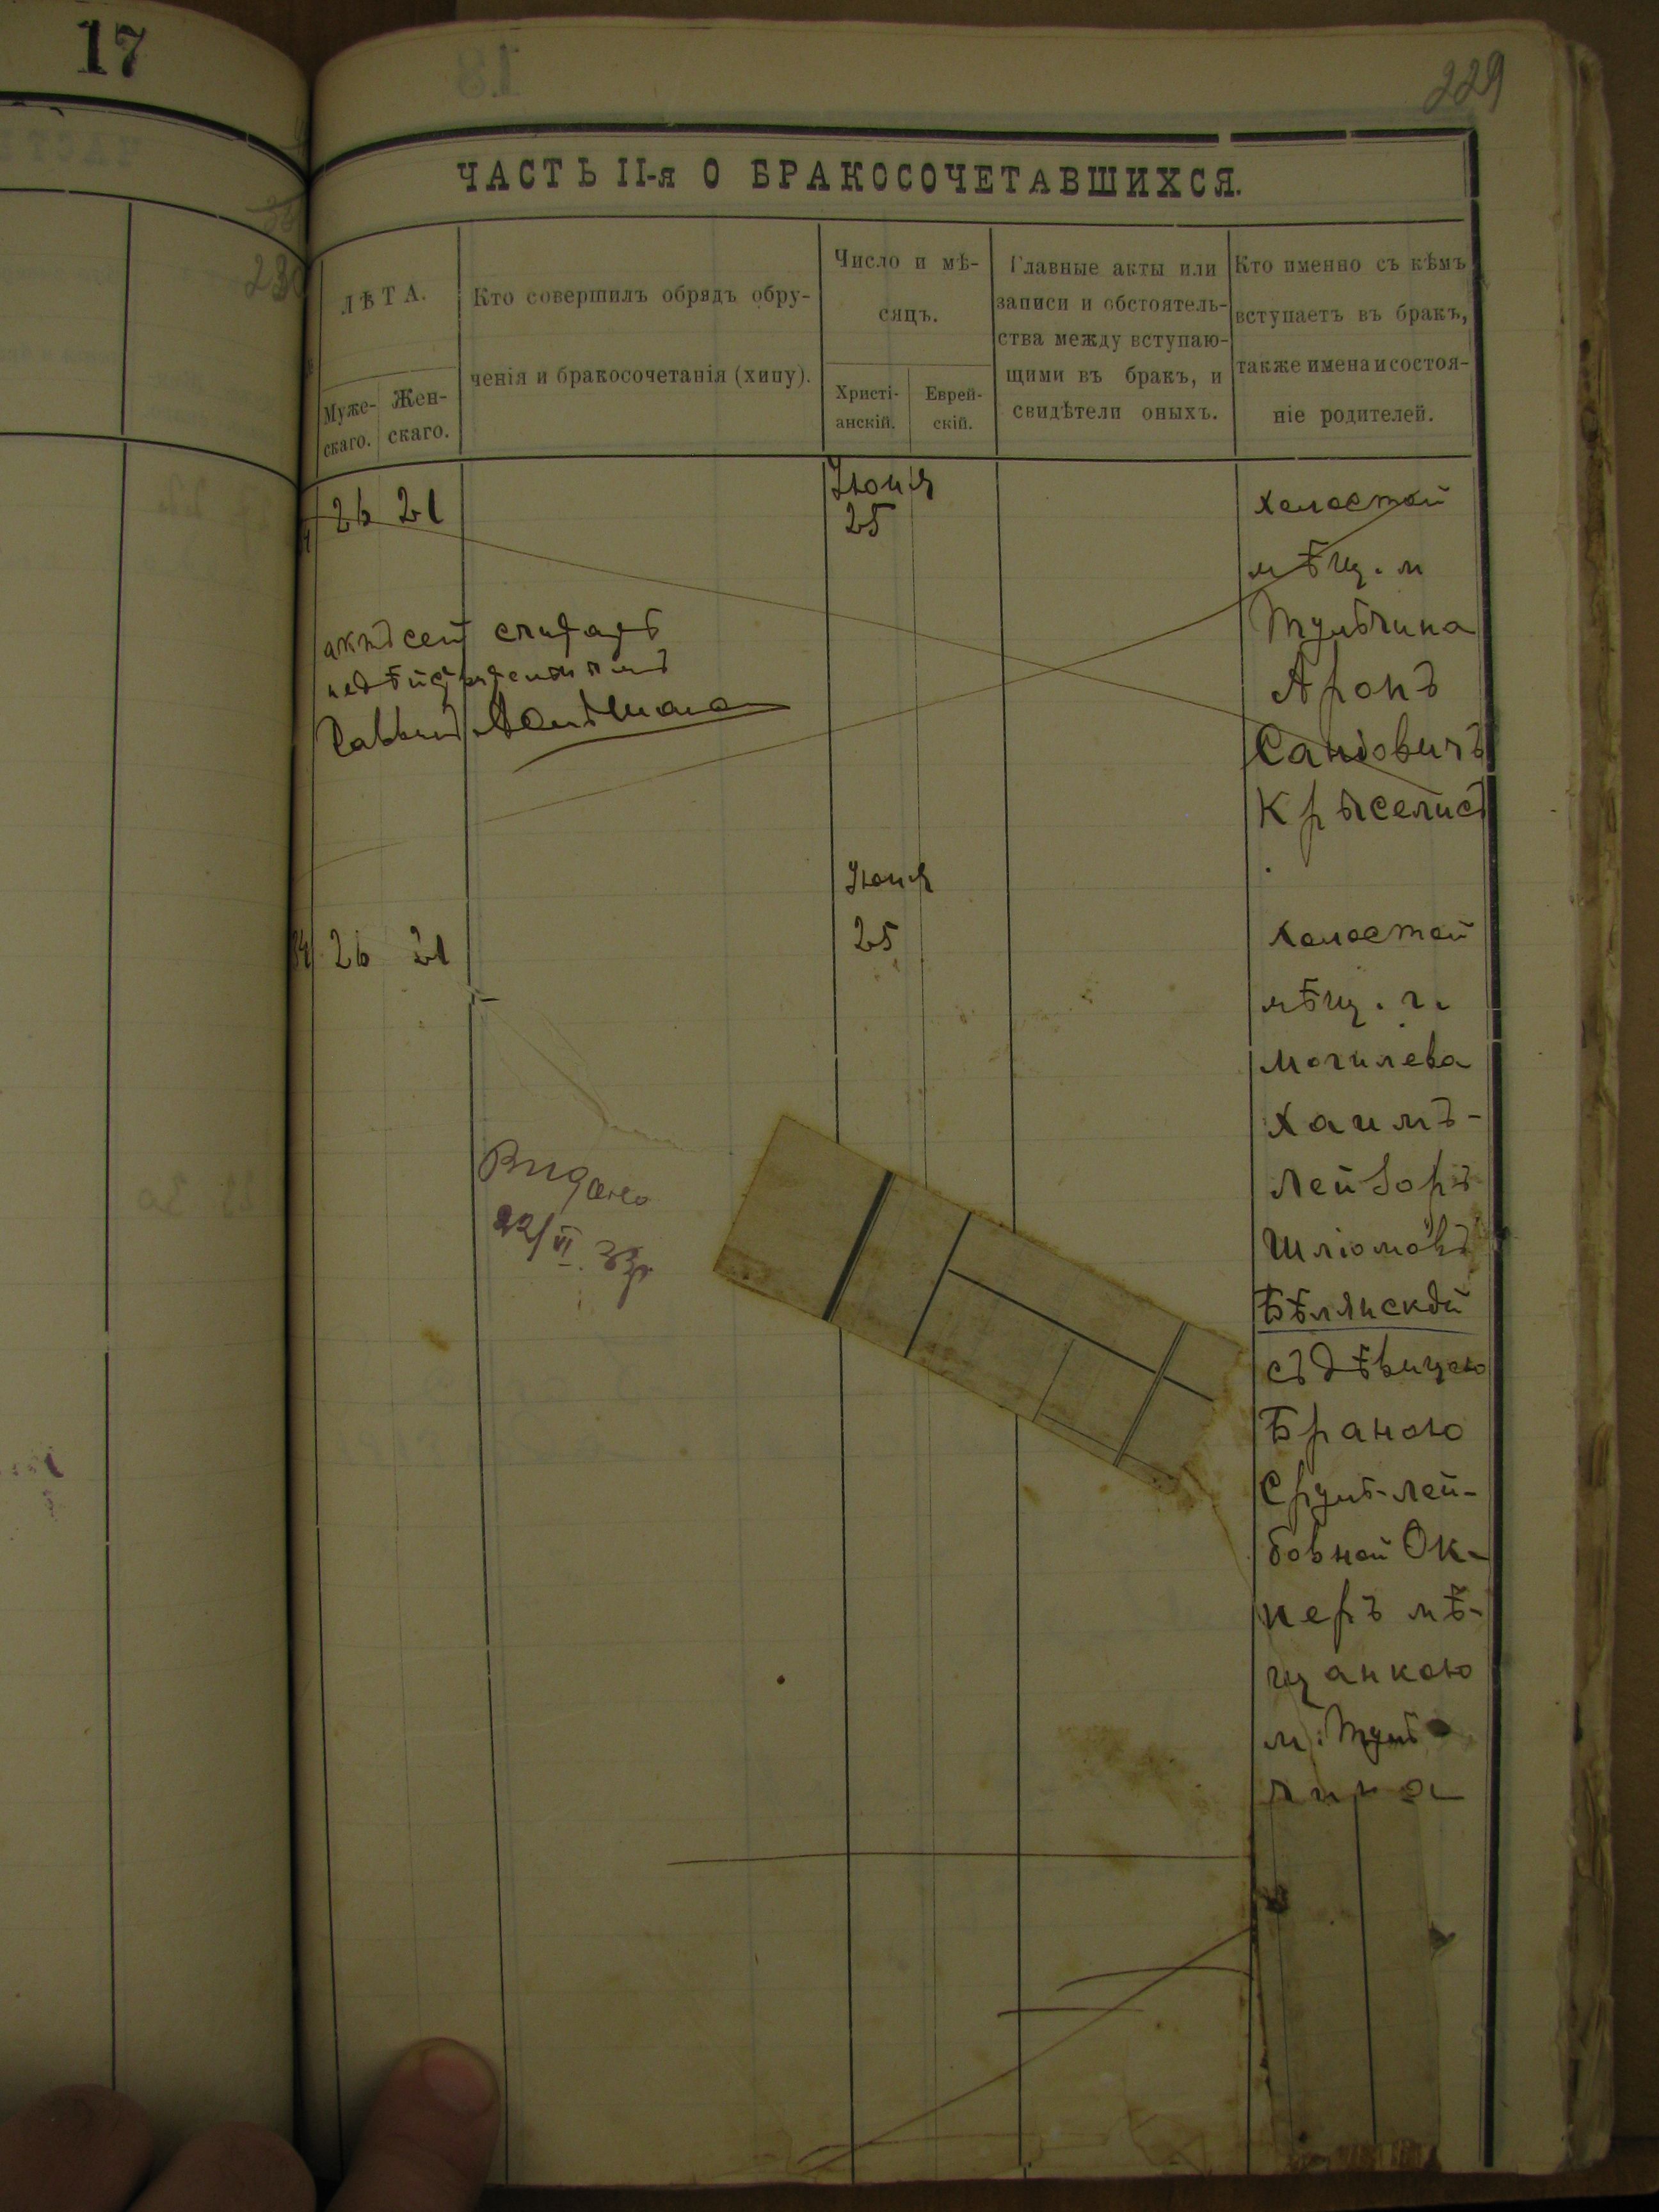 17
229
ЧАСТЬ II-я О БРАКОСОЧЕТАВШИХСЯ.
ЛѢТА.
Муже-
скаго.
Жен-
скаго.
Кто совершилъ обрядъ обру-
ченія и бракосочетанія (хипу).
Число и мѣ-
сяцъ.
Христі-
анскій.
Еврей-
скій.
Главные акты или
записи и обстоятель-
ства между вступаю-
щими въ бракъ, и
свидѣтели оныхъ.
Кто именно съ кѣмъ
вступаетъ въ бракъ,
также имена и состоя-
ніе родителей.
26 21
Іюня
25
холостой
мѣщ. м
Тульчина
Аронъ
актъ сей
недѣйствительнымъ
Раввинъ
Іюня
25
26 21
холостой
мѣщ. г.
Могилева
Хаимъ-
Лейзоръ
Шліомовъ
Бѣлянскій
съ дѣвицею
Браною
Сруль-Лей-
бовной Ок-
неръ мѣ-
щанкою
м. Туль
чина
Видано
22/VI 33г